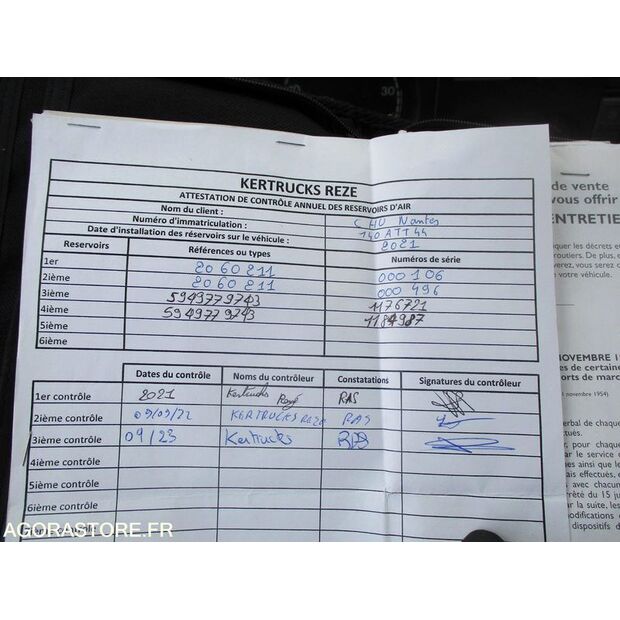 KERTRUCKS REZE
ATTESTATION DE CONTRÔLE ANNUEL DES RESERVOIRS D'AIR
Nom du client : CHU Nantes
Numéro d'immatriculation : 140 ATT 44
Date d'installation des réservoirs sur le véhicule : 2021
Reservoirs Références ou types Numéros de série
1er 2060211 000106
2ième 2060211 000496
3ième 5949779743 1176721
4ième 5949779743 1184987
5ième
6ième
Dates du contrôle Noms du contrôleur Constatations Signatures du contrôleur
1er contrôle 2021 Kertrucks Rezé RAS
2ième contrôle 09/09/22 KERTRUCKS REZE RAS
3ième contrôle 09/23 Kertrucks RAS
4ième contrôle
5ième contrôle
6ième contrôle
contrôle
de vente
vous offrir
ENTRETIE
quer les décrets et
routiers. De plus, e
verez, vous serez c
votre véhicule.
NOVEMBRE 1
es de certaine
orts de marc
novembre 1954)
erbal de chaque
ctués.
pour chaque
le service
ues ainsi que le
ais effectués, e
avec chacun
rrêté du 15 ju
la suite, les
odifications
dispositifs d
30
AGORASTORE.FR